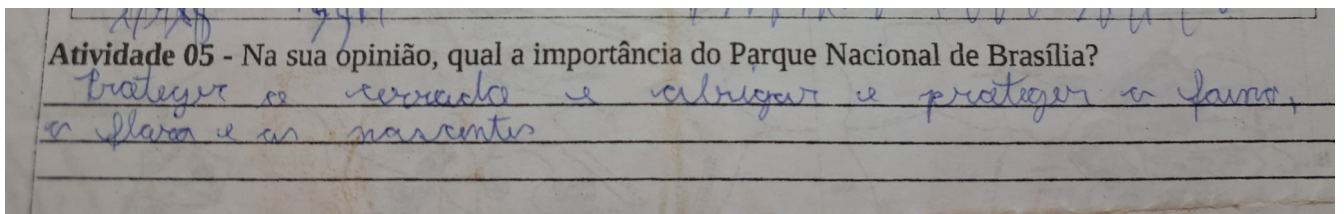 Atividade 05 - Na sua opinião, qual a importância do Parque Nacional de Brasília?
Proteger o cerrado e abrigar e proteger a fauna,
a flora e as nascentes